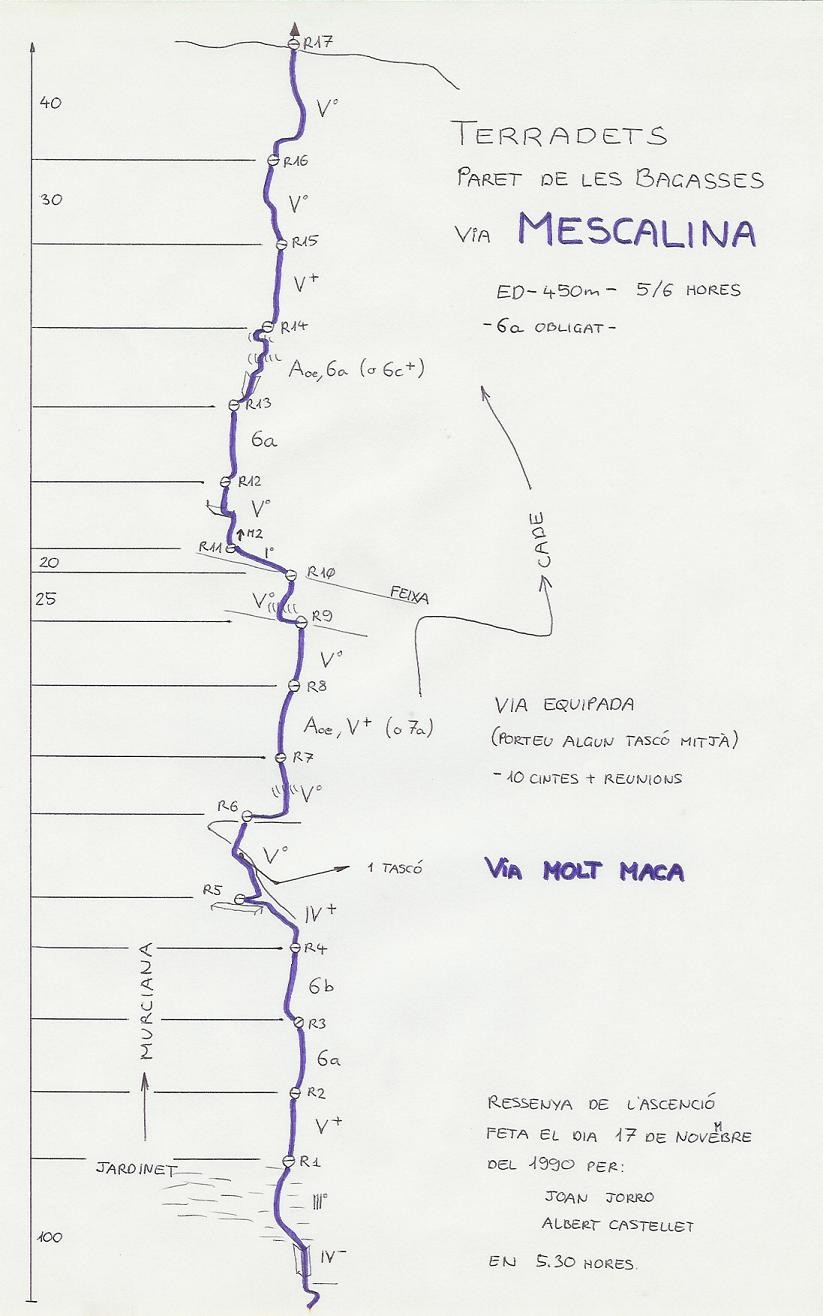 R17
40
V°
TERRADETS
R16
PARET DE LES BAGASSES
30
V°
VIA MESCALINA
R15
V+
ED-450m- 5/6 HORES
R14
-6a OBLIGAT-
Aoe, 6a (o 6c+)
R13
6a
R12
V°
M2
R11
I°
CADE
20
R10
FEIXA
25
V°
R9
V°
R8
VIA EQUIPADA
Aoe, V+ (o 7a)
(PORTEU ALGUN TASCÓ MITJÀ)
R7
-10 CINTES + REUNIONS
V°
R6
V°
1 TASCÓ
VIA MOLT MACA
R5
IV+
R4
MURCIANA
6b
R3
6a
R2
RESSENYA DE L'ASCENCIÓ
V+
FETA EL DIA 17 DE NOVEMBRE
R1
JARDINET
DEL 1990 PER:
III°
JOAN JORRO
ALBERT CASTELLET
100
IV-
EN 5.30 HORES.